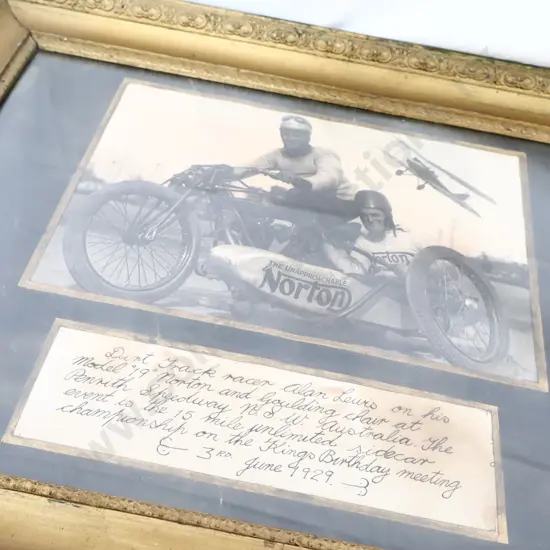 THE UNAPPROACHABLE
Norton
Norton
Dirt Track racer Alan Lewis on his
Model "19" Norton and Goulding chair at
Penrith Speedway N.S.W. Australia. The
event is the 15 mile unlimited sidecar
championship on the Kings Birthday meeting
3RD. June 1929.